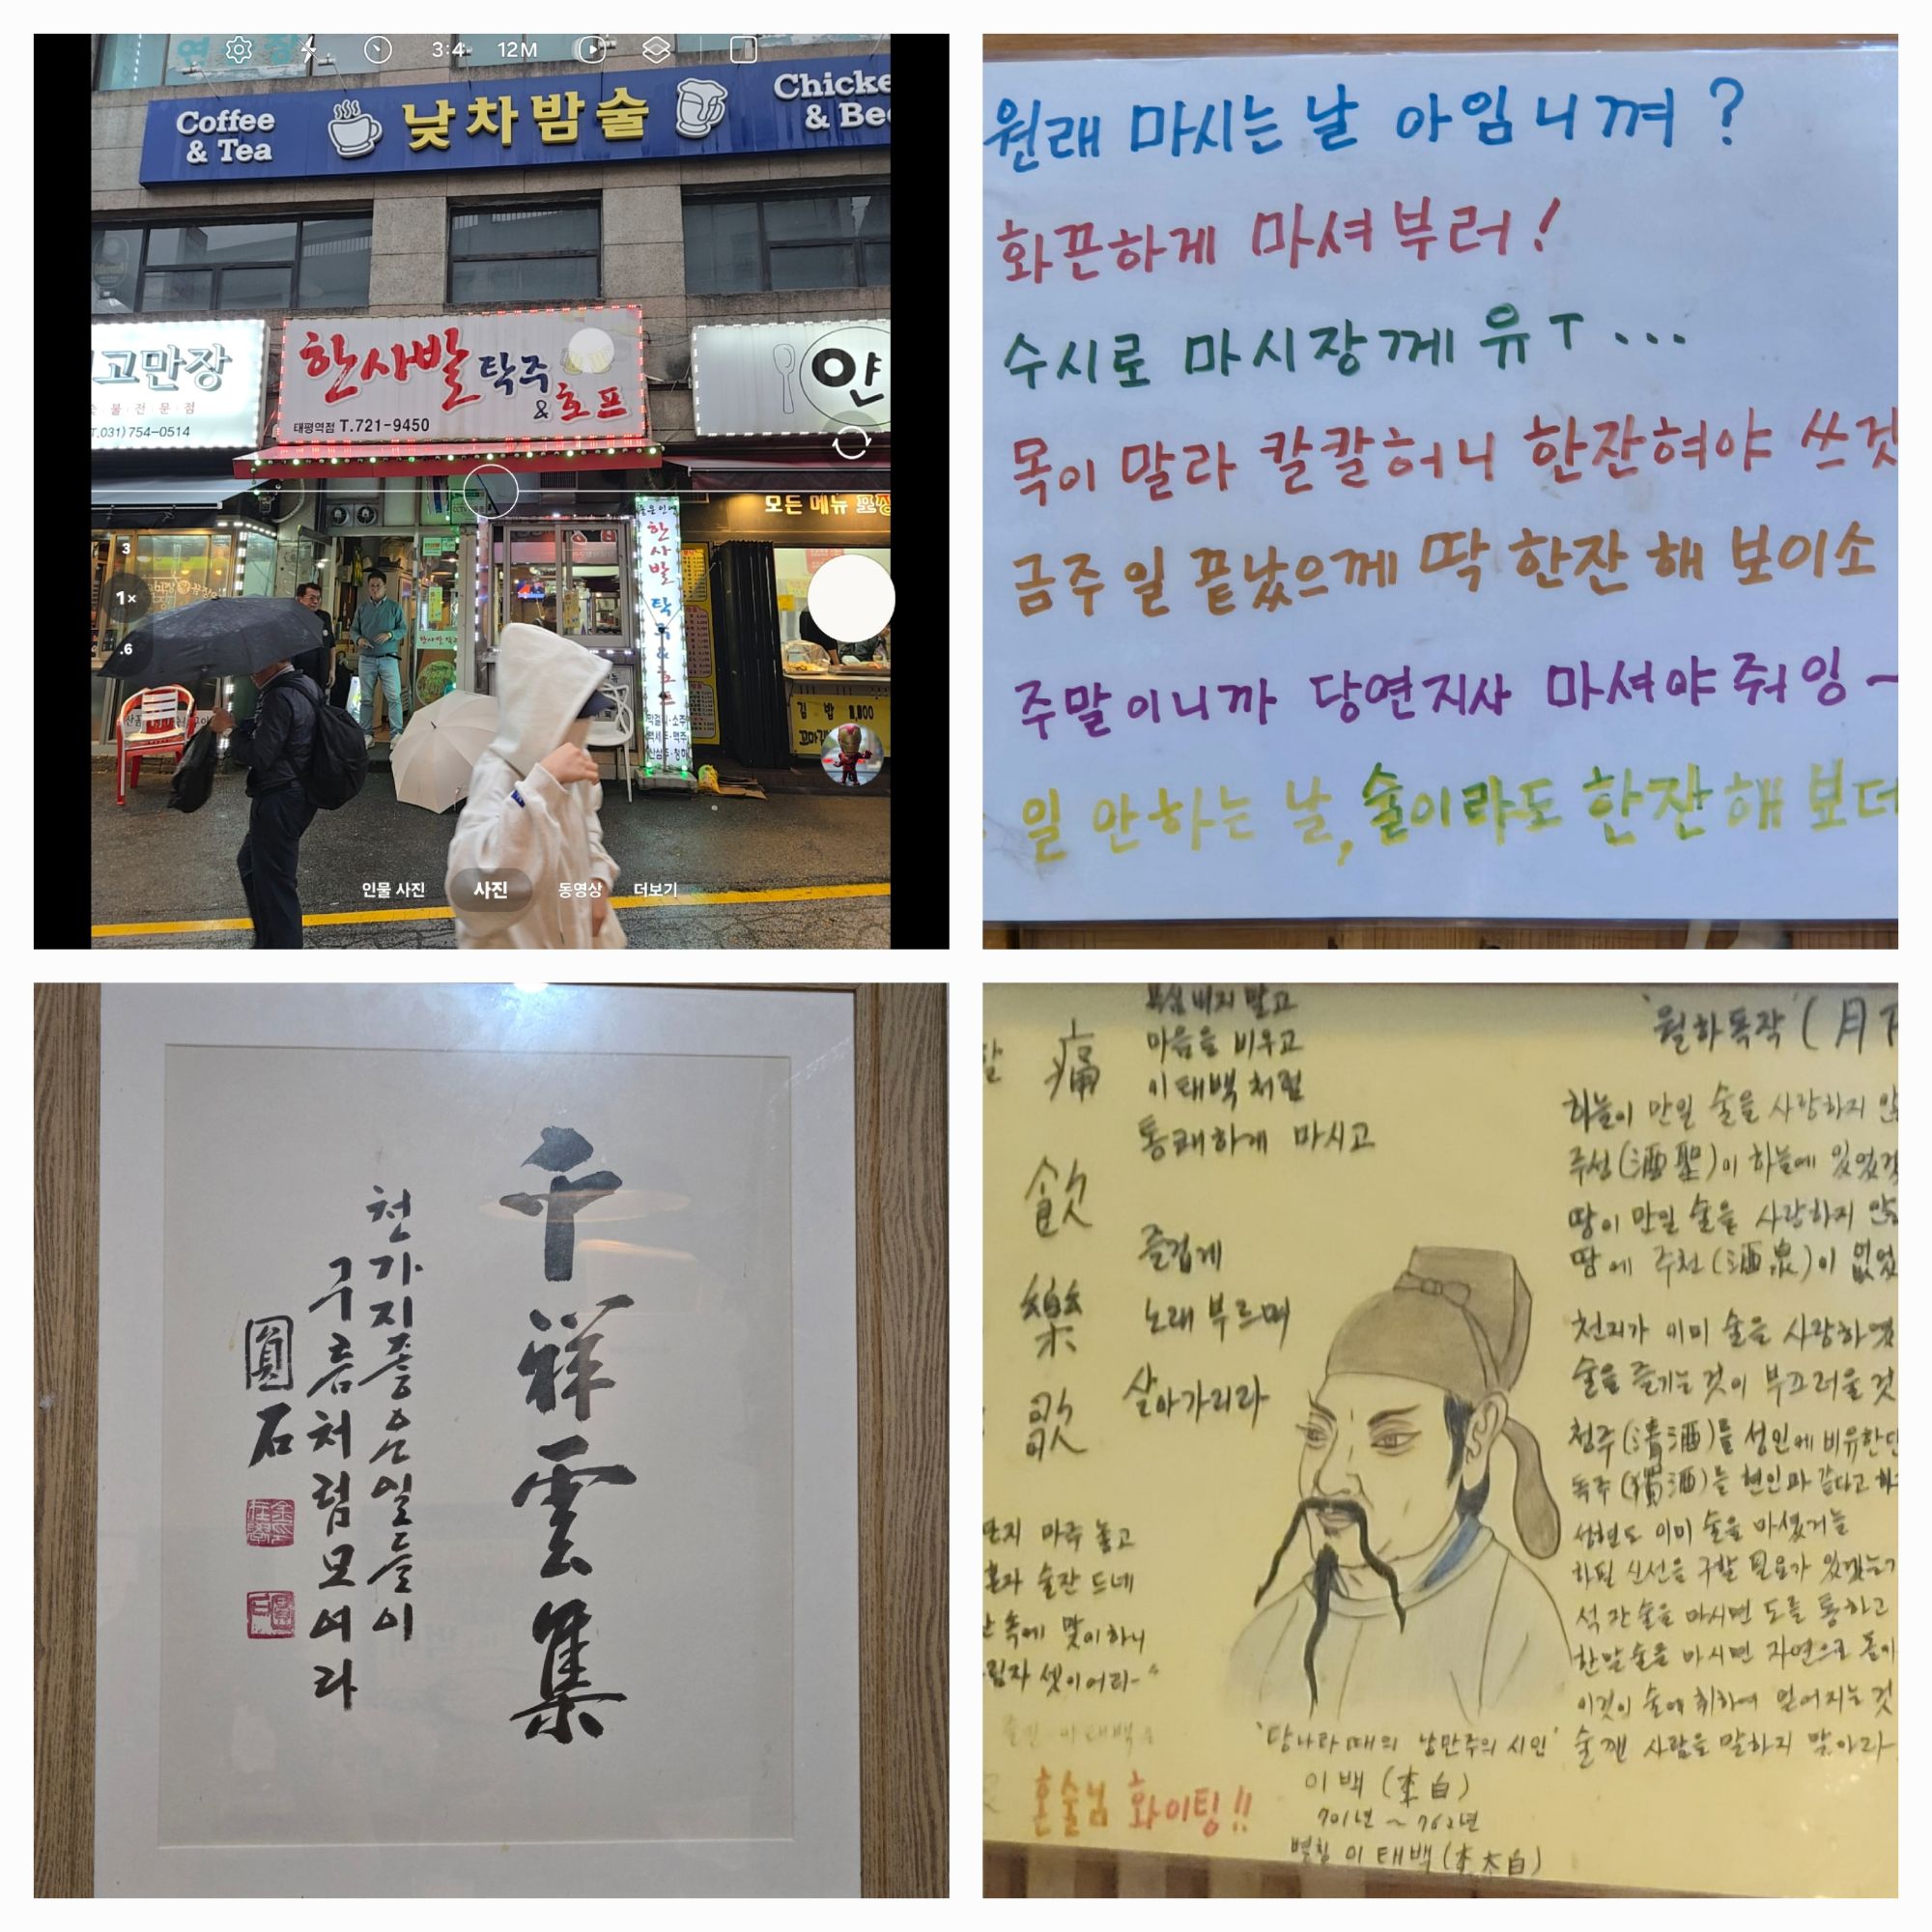 3:4 12M
Coffee
& Tea
낮차밤술
고만장
물·전·문·점
T.031) 754-0514
한사발 탁주
& 호프
태평역점 T.721-9450
얀
모든 메뉴 포장
한사발 탁주 & 호프
김 밥
3
1×
.6
인물 사진 사진 동영상 더보기
원래 마시는 날 아임니껴 ?
화끈하게 마셔부러 !
수시로 마시장께 유ㅜ ...
목이 말라 칼칼허니 한잔혀야 쓰것
금주일 끝났으께 딱 한잔 해 보이소
주말이니까 당연지사 마셔야줘잉~
일 안하는 날, 술이라도 한잔 해 보더
千祥雲集
천가지좋은일들이
구름처럼모여라
圓石
마음을 비우고
이태백처럼
통쾌하게 마시고
飮
즐겁게
樂
노래 부르며
歌
살아가리라
마주 놓고
술잔 드네
속에 맞이하니
셋이어라"
혼술님 화이팅!!
'당나라때의 낭만주의 시인'
이백 (李白)
701년 ~ 762년
별칭 이태백(李太白)
'월하독작' (月下
하늘이 만일 술을 사랑하지
주성(酒聖)이 하늘에
땅이 만일 술을 사랑하지
땅에 주천(酒泉)이
천지가 이미 술을 사랑하
술을 즐기는 것이 부끄러울 것
청주(淸酒)를 성인에 비유한
독주 를 현인과 같다고
성현도 이미 술을 마셨거늘
하필 신선을 구할 필요가
석 잔 술을 마시면 도를 통하고
한말 술을 마시면 자연으로
이것이 술에 취하여 얻어지는 것
술깬 사람을 말하지 말아라